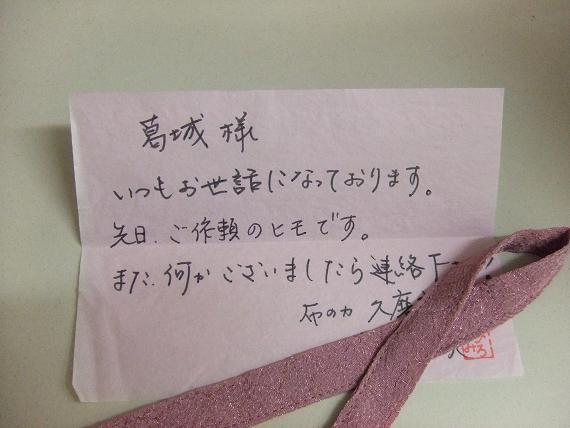 葛城様
いつもお世話になっております。
先日、ご依頼のヒモです。
また、何かございましたら連絡下
布のカ 久